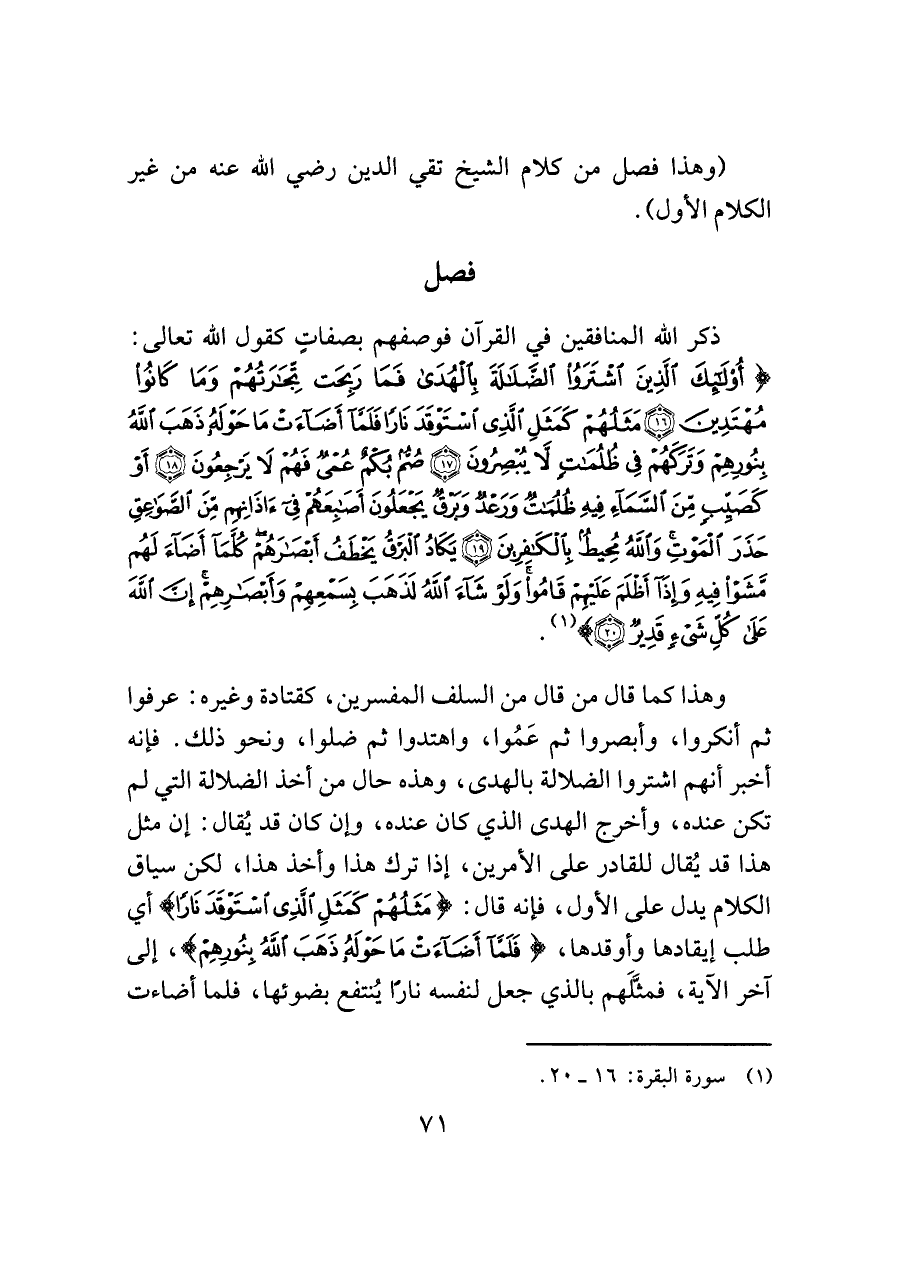 (وهذا فصل من كلام الشيخ تقي الدين رضي الله عنه من غير
الكلام الأول).
فصل
ذكر الله المنافقين في القرآن فوصفهم بصفاتٍ كقول الله تعالى:
﴿ أُوْلَٰٓئِكَ ٱلَّذِينَ ٱشْتَرَوُاْ ٱلضَّلَٰلَةَ بِٱلْهُدَىٰ فَمَا رَبِحَت تِّجَٰرَتُهُمْ وَمَا كَانُواْ
مُهْتَدِينَ ١٦ مَثَلُهُمْ كَمَثَلِ ٱلَّذِى ٱسْتَوْقَدَ نَارًا فَلَمَّآ أَضَآءَتْ مَا حَوْلَهُۥ ذَهَبَ ٱللَّهُ
بِنُورِهِمْ وَتَرَكَهُمْ فِى ظُلُمَٰتٍ لَّا يُبْصِرُونَ ١٧ صُمٌّۢ بُكْمٌ عُمْىٌ فَهُمْ لَا يَرْجِعُونَ ١٨ أَوْ
كَصَيِّبٍ مِّنَ ٱلسَّمَآءِ فِيهِ ظُلُمَٰتٌ وَرَعْدٌ وَبَرْقٌ يَجْعَلُونَ أَصَٰبِعَهُمْ فِىٓ ءَاذَانِهِم مِّنَ ٱلصَّوَٰعِقِ
حَذَرَ ٱلْمَوْتِ ۚ وَٱللَّهُ مُحِيطٌۢ بِٱلْكَٰفِرِينَ ١٩ يَكَادُ ٱلْبَرْقُ يَخْطَفُ أَبْصَٰرَهُمْ ۖ كُلَّمَآ أَضَآءَ لَهُم
مَّشَوْاْ فِيهِ وَإِذَآ أَظْلَمَ عَلَيْهِمْ قَامُواْ ۚ وَلَوْ شَآءَ ٱللَّهُ لَذَهَبَ بِسَمْعِهِمْ وَأَبْصَٰرِهِمْ ۚ إِنَّ ٱللَّهَ
عَلَىٰ كُلِّ شَىْءٍ قَدِيرٌ ٢٠﴾(١).
وهذا كما قال من قال من السلف المفسرين، كقتادة وغيره: عرفوا
ثم أنكروا، وأبصروا ثم عَمُوا، واهتدوا ثم ضلوا، ونحو ذلك. فإنه
أخبر أنهم اشتروا الضلالة بالهدى، وهذه حال من أخذ الضلالة التي لم
تكن عنده، وأخرج الهدى الذي كان عنده، وإن كان قد يُقال: إن مثل
هذا قد يُقال للقادر على الأمرين، إذا ترك هذا وأخذ هذا، لكن سياق
الكلام يدل على الأول، فإنه قال: ﴿ مَثَلُهُمْ كَمَثَلِ ٱلَّذِى ٱسْتَوْقَدَ نَارًا﴾ أي
طلب إيقادها وأوقدها، ﴿ فَلَمَّآ أَضَآءَتْ مَا حَوْلَهُۥ ذَهَبَ ٱللَّهُ بِنُورِهِمْ﴾، إلى
آخر الآية، فمثَّلَهم بالذي جعل لنفسه نارًا يُنتفع بضوئها، فلما أضاءت
(١) سورة البقرة: ١٦ ـ ٢٠.
٧١